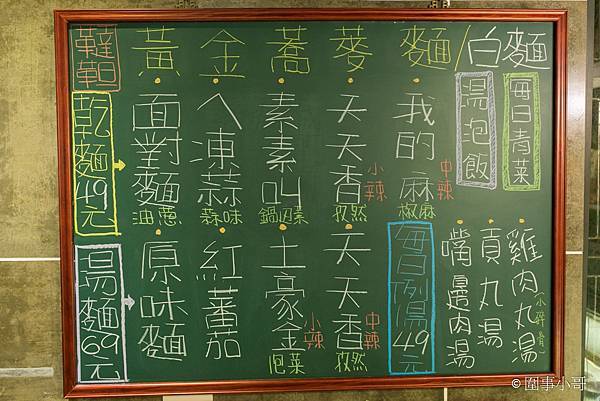 韃靼
黃金蕎麥麵/白麵
乾麵49元
面對麵
油蔥
ㄟ凍蒜
蒜味
素素叫
鍋囚菜
天天香
小辣
孜然
我的麻
中辣
椒麻
湯泡飯
每日青菜
湯麵69元
原味麵
紅蕃茄
土豪金
小辣
泡菜
天天香
中辣
孜然
每日例湯49元
嘴邊肉湯
貢丸湯
雞肉丸湯
© 囧事小哥